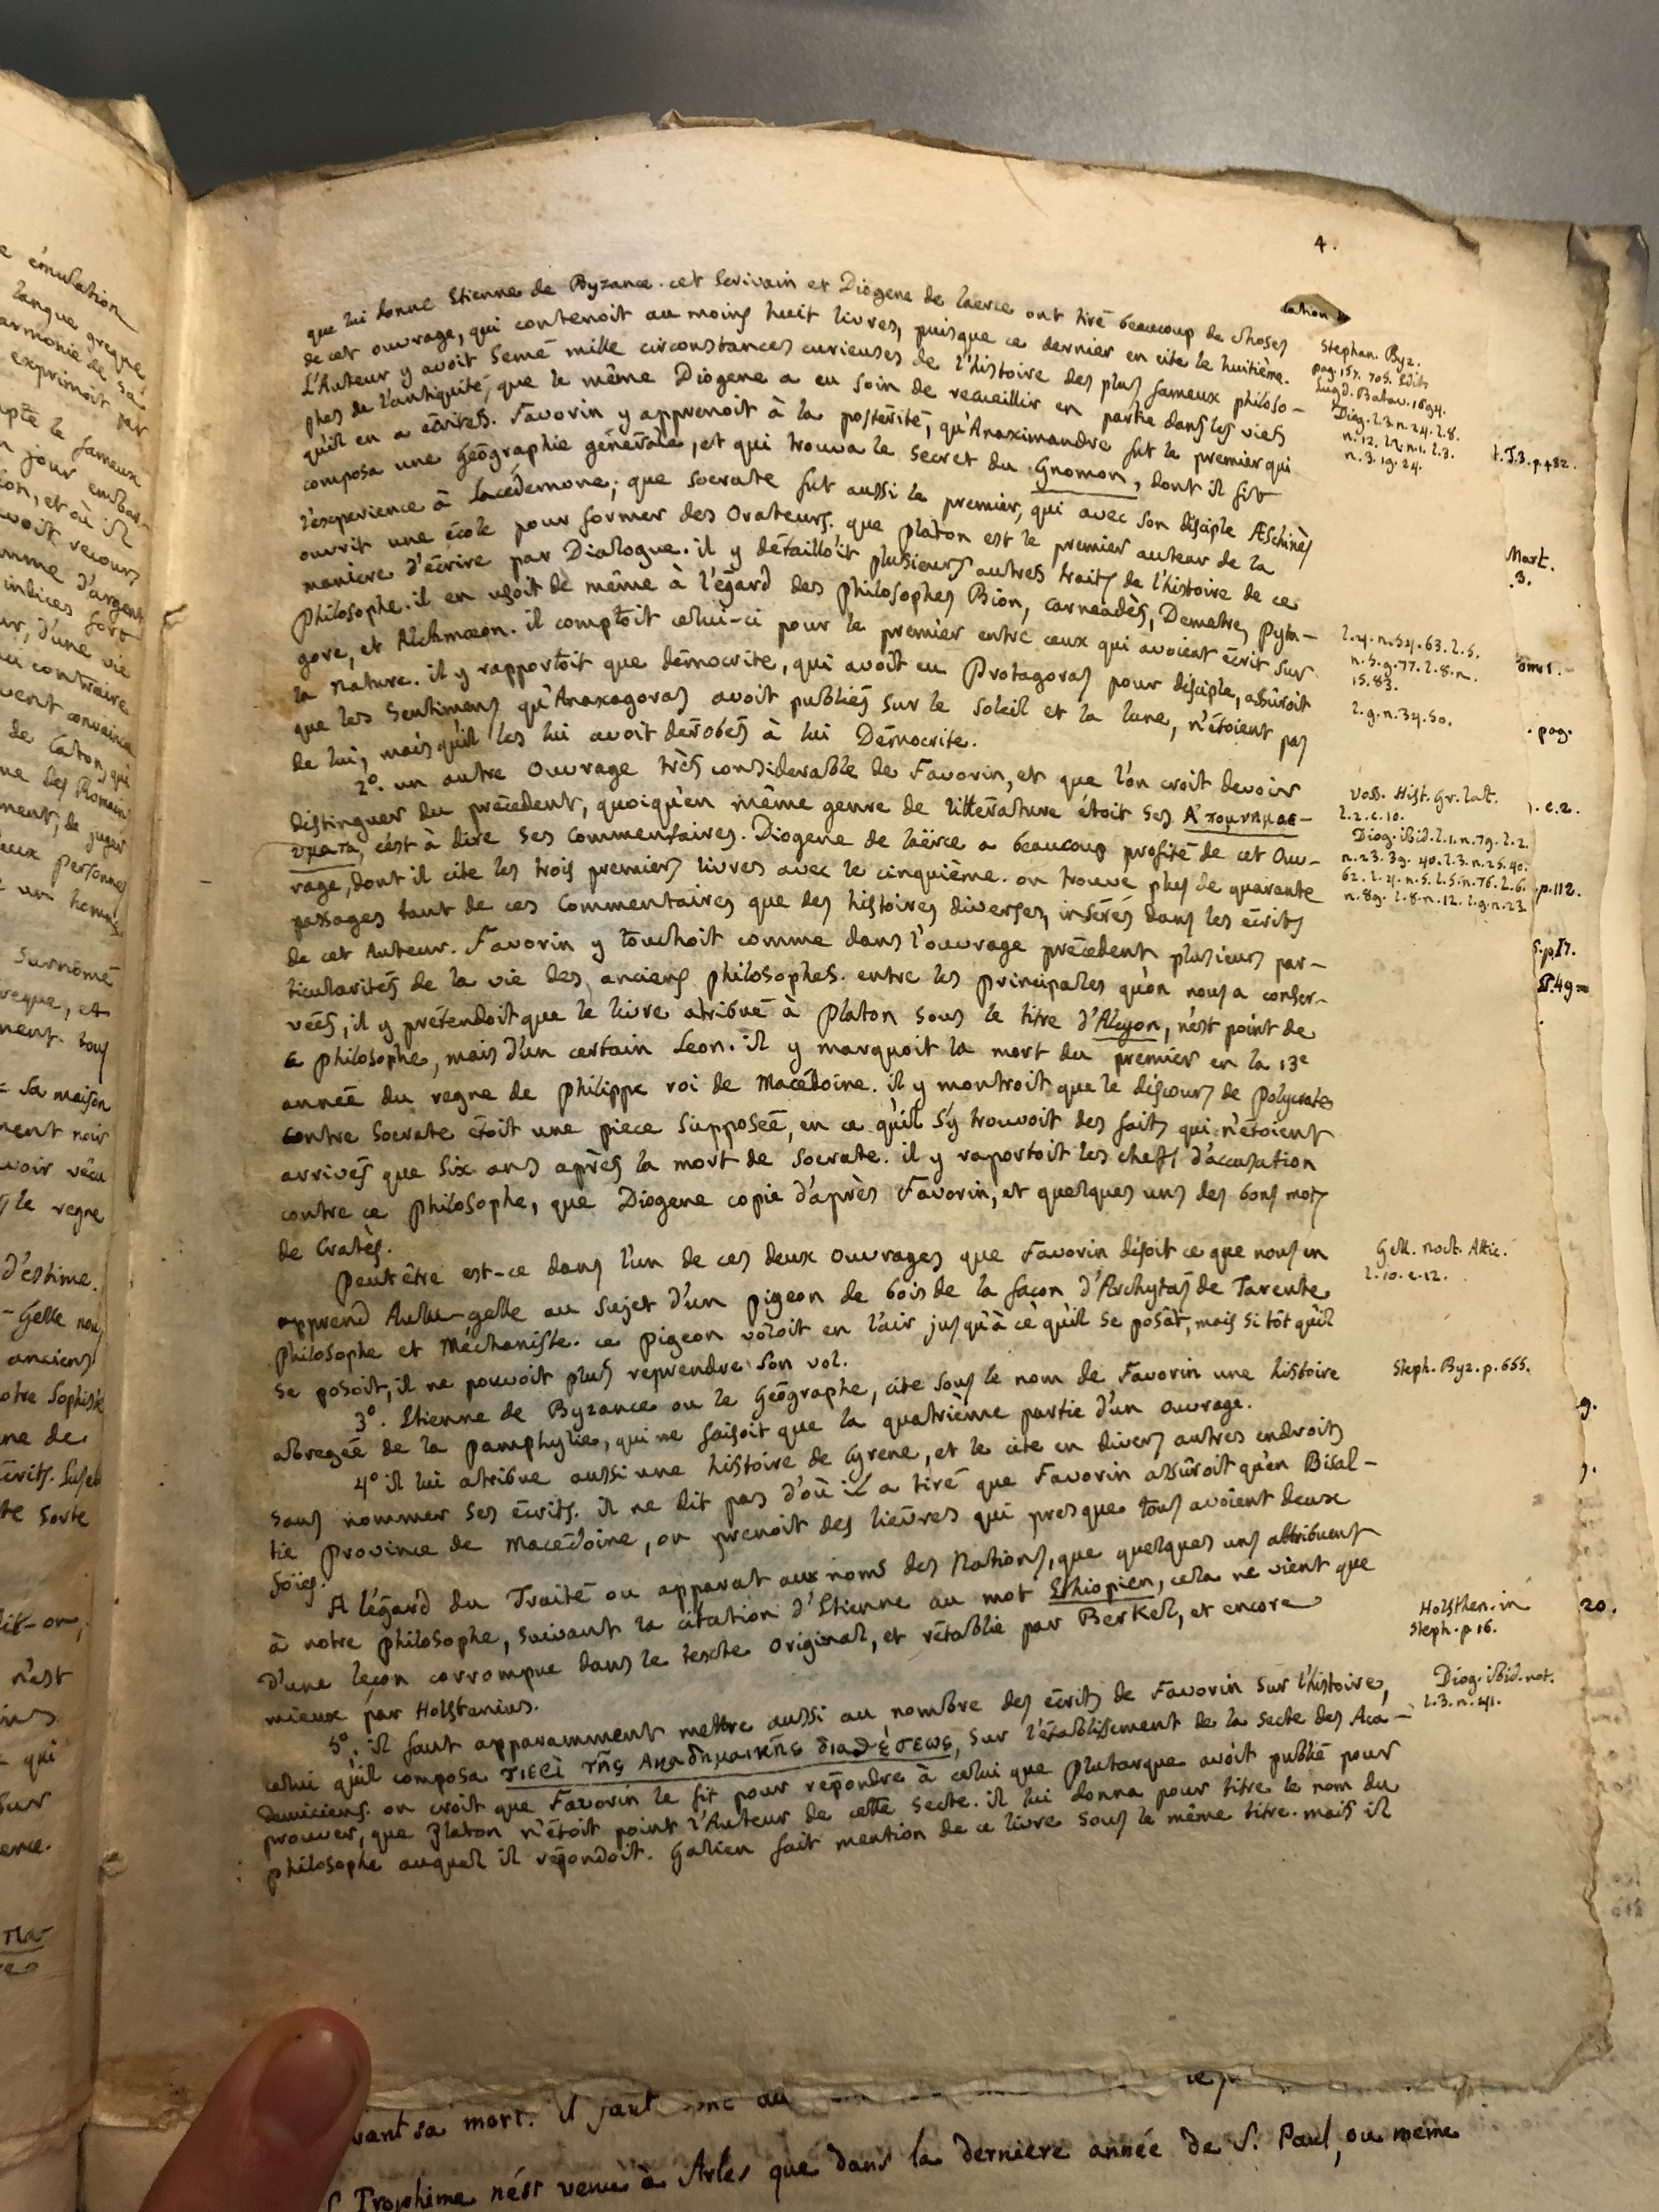 4.
que lui donne Etienne de Byzance. cet Ecrivain et Diogene de laerce ont tiré beaucoup de choses
de cet ouvrage, qui contenoit au moins huit livres, puisque ce dernier en cite le huitième.
L'Auteur y avoit semé mille circonstances curieuses de l'histoire des plus fameux philoso-
phes de l'antiquité, que le même Diogene a eu soin de recueillir en partie dans les vies
qu'il en a écrites. Favorin y apprenoit à la postérité, qu'Anaximandre fut le premier qui
composa une Géographie générale, et qui trouva le secret du Gnomon, dont il fit
l'experience à Lacédemone; que socrate fut aussi le premier, qui avec son disciple Æschinès
ouvrit une école pour former des Orateurs. que platon est le premier auteur de la
maniere d'écrire par Dialogue. il y détailloit plusieurs autres traits de l'histoire de ce
philosophe. il en usoit de même à l'égard des philosophes Bion, carneadès, Demetre, pyta-
gore, et Alchmæon. il comptoit celui-ci pour le premier entre ceux qui avoient écrit sur
la nature. il y rapportoit que démocrite, qui avoit eu Protagoras pour disciple, assûroit
que les sentimens qu'Anaxagoras avoit publiés sur le soleil et la lune, n'étoient pas
de lui, mais qu'il les lui avoit dérobés à lui Démocrite.
2º. un autre ouvrage très considerable de Favorin, et que l'on croit devoir
distinguer du précedent, quoiqu'en même genre de littérature étoit ses Α'πομνημοε-
υματα, c'est à dire ses commentaires. Diogene de laërce a beaucoup profité de cet ou-
rage, dont il cite les trois premiers livres avec le cinquième. on trouve plus de quarante
passages tant de ces commentaires que des histoires diverses, insérés dans les écrits
de cet Auteur. Favorin y touchoit comme dans l'ouvrage précedent plusieurs par-
ticularités de la vie des anciens philosophes. entre les principales qu'on nous a conser-
vées, il y prétendoit que le livre atribué à platon sous le titre d'Alcyon, n'est point de
ce philosophe, mais d'un certain Leon. il y marquoit la mort du premier en la 13e
année du regne de philippe roi de Macédoine. il y montroit que le discours de polycrates
contre socrate étoit une piece supposée, en ce qu'il s'y trouvoit des faits qui n'étoient
arrivés que six ans après la mort de socrate. il y raportoit les chefs d'accusation
contre ce philosophe, que Diogene copie d'après Favorin, et quelques uns des bons mots
de Cratès.
peut être est-ce dans l'un de ces deux ouvrages que Favorin disoit ce que nous en
apprend Aulu-gelle au sujet d'un pigeon de bois de la façon d'Archytas de Tarente
philosophe et Méchaniste. ce pigeon voloit en l'air jusqu'à ce qu'il se posât, mais si tôt qu'il
se posoit, il ne pouvoit plus reprendre son vol.
3º. Etienne de Byzance ou le Géographe, cite sous le nom de Favorin une histoire
abregée de la pamphylie, qui ne faisoit que la quatrième partie d'un ouvrage.
4º il lui atribue aussi une histoire de Cyrene, et le cite en divers autres endroits
sans nommer ses écrits. il ne dit pas d'où il a tiré que Favorin assûroit qu'en Bisal-
tie province de Macédoine, on prenoit des lièvres qui presque tous avoient deux
foïes.
A l'égard du Traité ou apparat aux noms des Nations, que quelques uns attribuent
à notre philosophe, suivant la citation d'Etienne au mot Ethiopien, cela ne vient que
d'une leçon corrompue dans le texte original, et rétablie par Berkel, et encore
mieux par Holstenius.
5º. il faut apparamment mettre aussi au nombre des écrits de Favorin sur l'histoire,
celui qu'il composa περὶ τῆς Ακαδημαικῆς διαθέσεως, sur l'établissement de la secte des Aca-
démiciens. on croit que Favorin le fit pour répondre à celui que plutarque avoit publié pour
prouver, que platon n'étoit point l'Auteur de cette secte. il lui donna pour titre le nom du
philosophe auquel il répondoit. Galien fait mention de ce livre sous le même titre. mais il
Stephan. Byz.
pag. 157. 705. Edit.
Lugd. Batav. 1694.
Diog. l.3. n. 24. l. 8.
n. 12. l.2. n. 1. l. 3.
n. 3. 19. 24.
l. 4. n. 54. 63. l. 5.
n. 5. 9. 77. l. 8. n.
15. 83.
l. 9. n. 34. 50.
voss. Hist. Gr. lat.
l. 2. c. 10.
Diog. ibid. l. 1. n. 79. l. 2.
n. 23. 39. 40. l. 3. n. 25. 40.
62. l. 4. n. 5. l. 5. n. 76. l. 6.
n. 89. l. 8. n. 12. l. 9. n. 23.
Gell. noct. Attic.
l. 10. c. 12.
Steph. Byz. p. 655.
Holsthen. in
Steph. p 16.
Diog. ibid. not.
l. 3. n. 41.
t. T.3. p. 482.
Mart.
3.
tom 1.
pag.
c. 2.
p. 112.
9.
20.
e émulation
langue greque
armonie de sa
exprimoit par
le fameux
jour embar-
et où il
recours
d'argent
indices fort
d'une vie
contraire
convaincu
de Caton, qui
des Romains
de juger
personnes
un homme
surnomé
reque, et
ment tous
sa maison
ment noir
avoir vécu
le regne
d'estime.
Gelle nous
anciens
otre sophiste
ne de
sorte
dit-on,
n'est
qui
sur
vant sa mort. il faut donc au
S. Trophime n'est venu à Arles que dans la derniere année de S. Paul, ou même